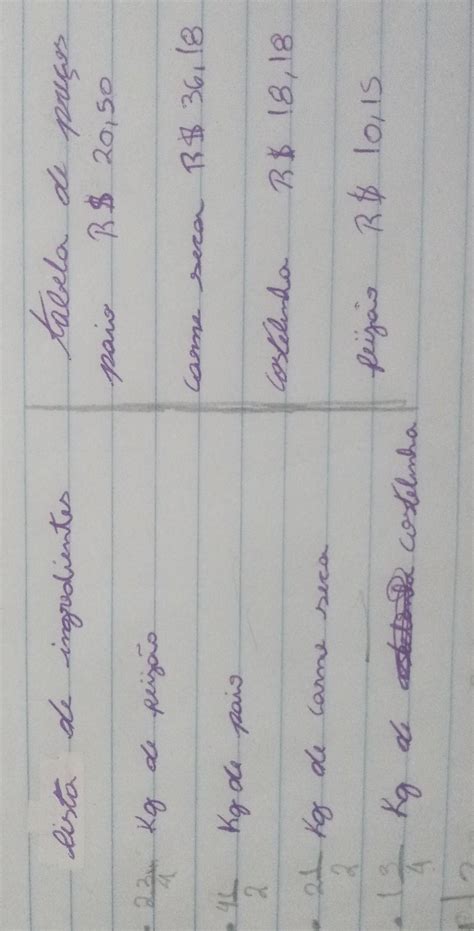 lista de ingredientes
• 2 3/4 Kg de feijão
• 4 1/2 Kg de paio
• 2 1/2 Kg de carne seca
• 1 3/4 Kg de costelinha
tabela de preços
paio R$ 20,50
carne seca R$ 36,18
costelinha R$ 18,18
feijão R$ 10,15